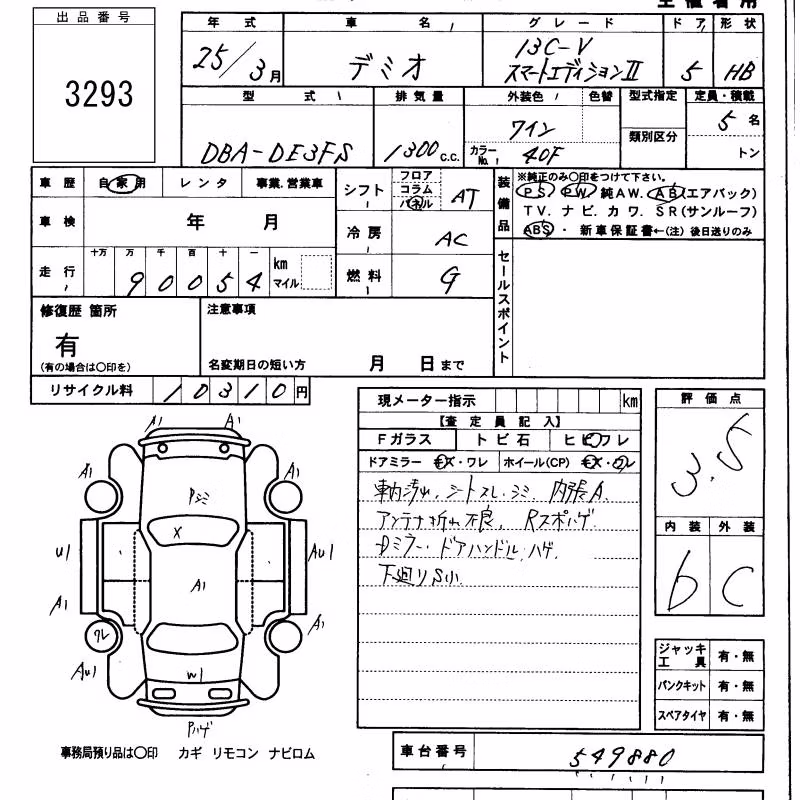 出品番号
3293
年式 車名 グレード ドア 形状
25/3月 デミオ 13C-V スマートエディションII 5 HB
型式 排気量 外装色 色替 型式指定 定員・積載
DBA-DE3FS 1300c.c. ワイン 類別区分 5名
カラーNo. 40F トン
車歴 自家用 レンタ 事業.営業車
車検 年 月
走行 十万 万 千 百 十 一
90054 km マイル
シフト フロア コラム パネル AT
冷房 AC
燃料 G
装備品
※純正のみ〇印をつけて下さい。
PS. PW. 純AW. AB(エアバック)
TV. ナビ. カワ. SR(サンルーフ)
ABS・ 新車保証書←(注) 後日送りのみ
セールスポイント
修復歴 箇所
有
(有の場合は〇印を)
注意事項
名変期日の短い方 月 日まで
リサイクル料 10310円
現メーター指示 km
【査定員記入】
Fガラス トビ石 ヒビワレ
ドアミラー キズ・ワレ ホイール(CP) キズ・ワレ
車内汚れ. シートスレ・シミ. 内張A.
アンテナ折れ不良. Rスポハゲ.
Dミラー・ドアハンドル.ハゲ.
下廻りS小
評価点
3.5
内装 外装
b C
ジャッキ工具 有・無
パンクキット 有・無
スペアタイヤ 有・無
A1 A1
A1 A1
Pシミ
X
U1 AU1
A1
A1 A1
ワレ
AU1
W1
Pハゲ
事務局預り品は〇印 カギ リモコン ナビロム
車台番号 549880